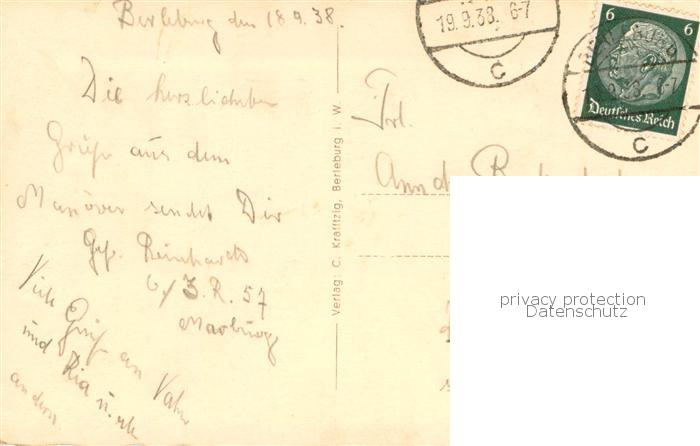 Berleburg den 18.9.38.
Die herzlichsten
Grüße aus dem
Manöver sendet Dir
Gef. Reinhardt
6/J.R. 57
Marburg
Viele Grüße an Vater
und Ria u. alle
andern.
Verlag: C. Krafftzig, Berleburg i. W.
19.9.38. 6-7
C
6 6
Deutsches Reich
C
Frl.
privacy protection
Datenschutz